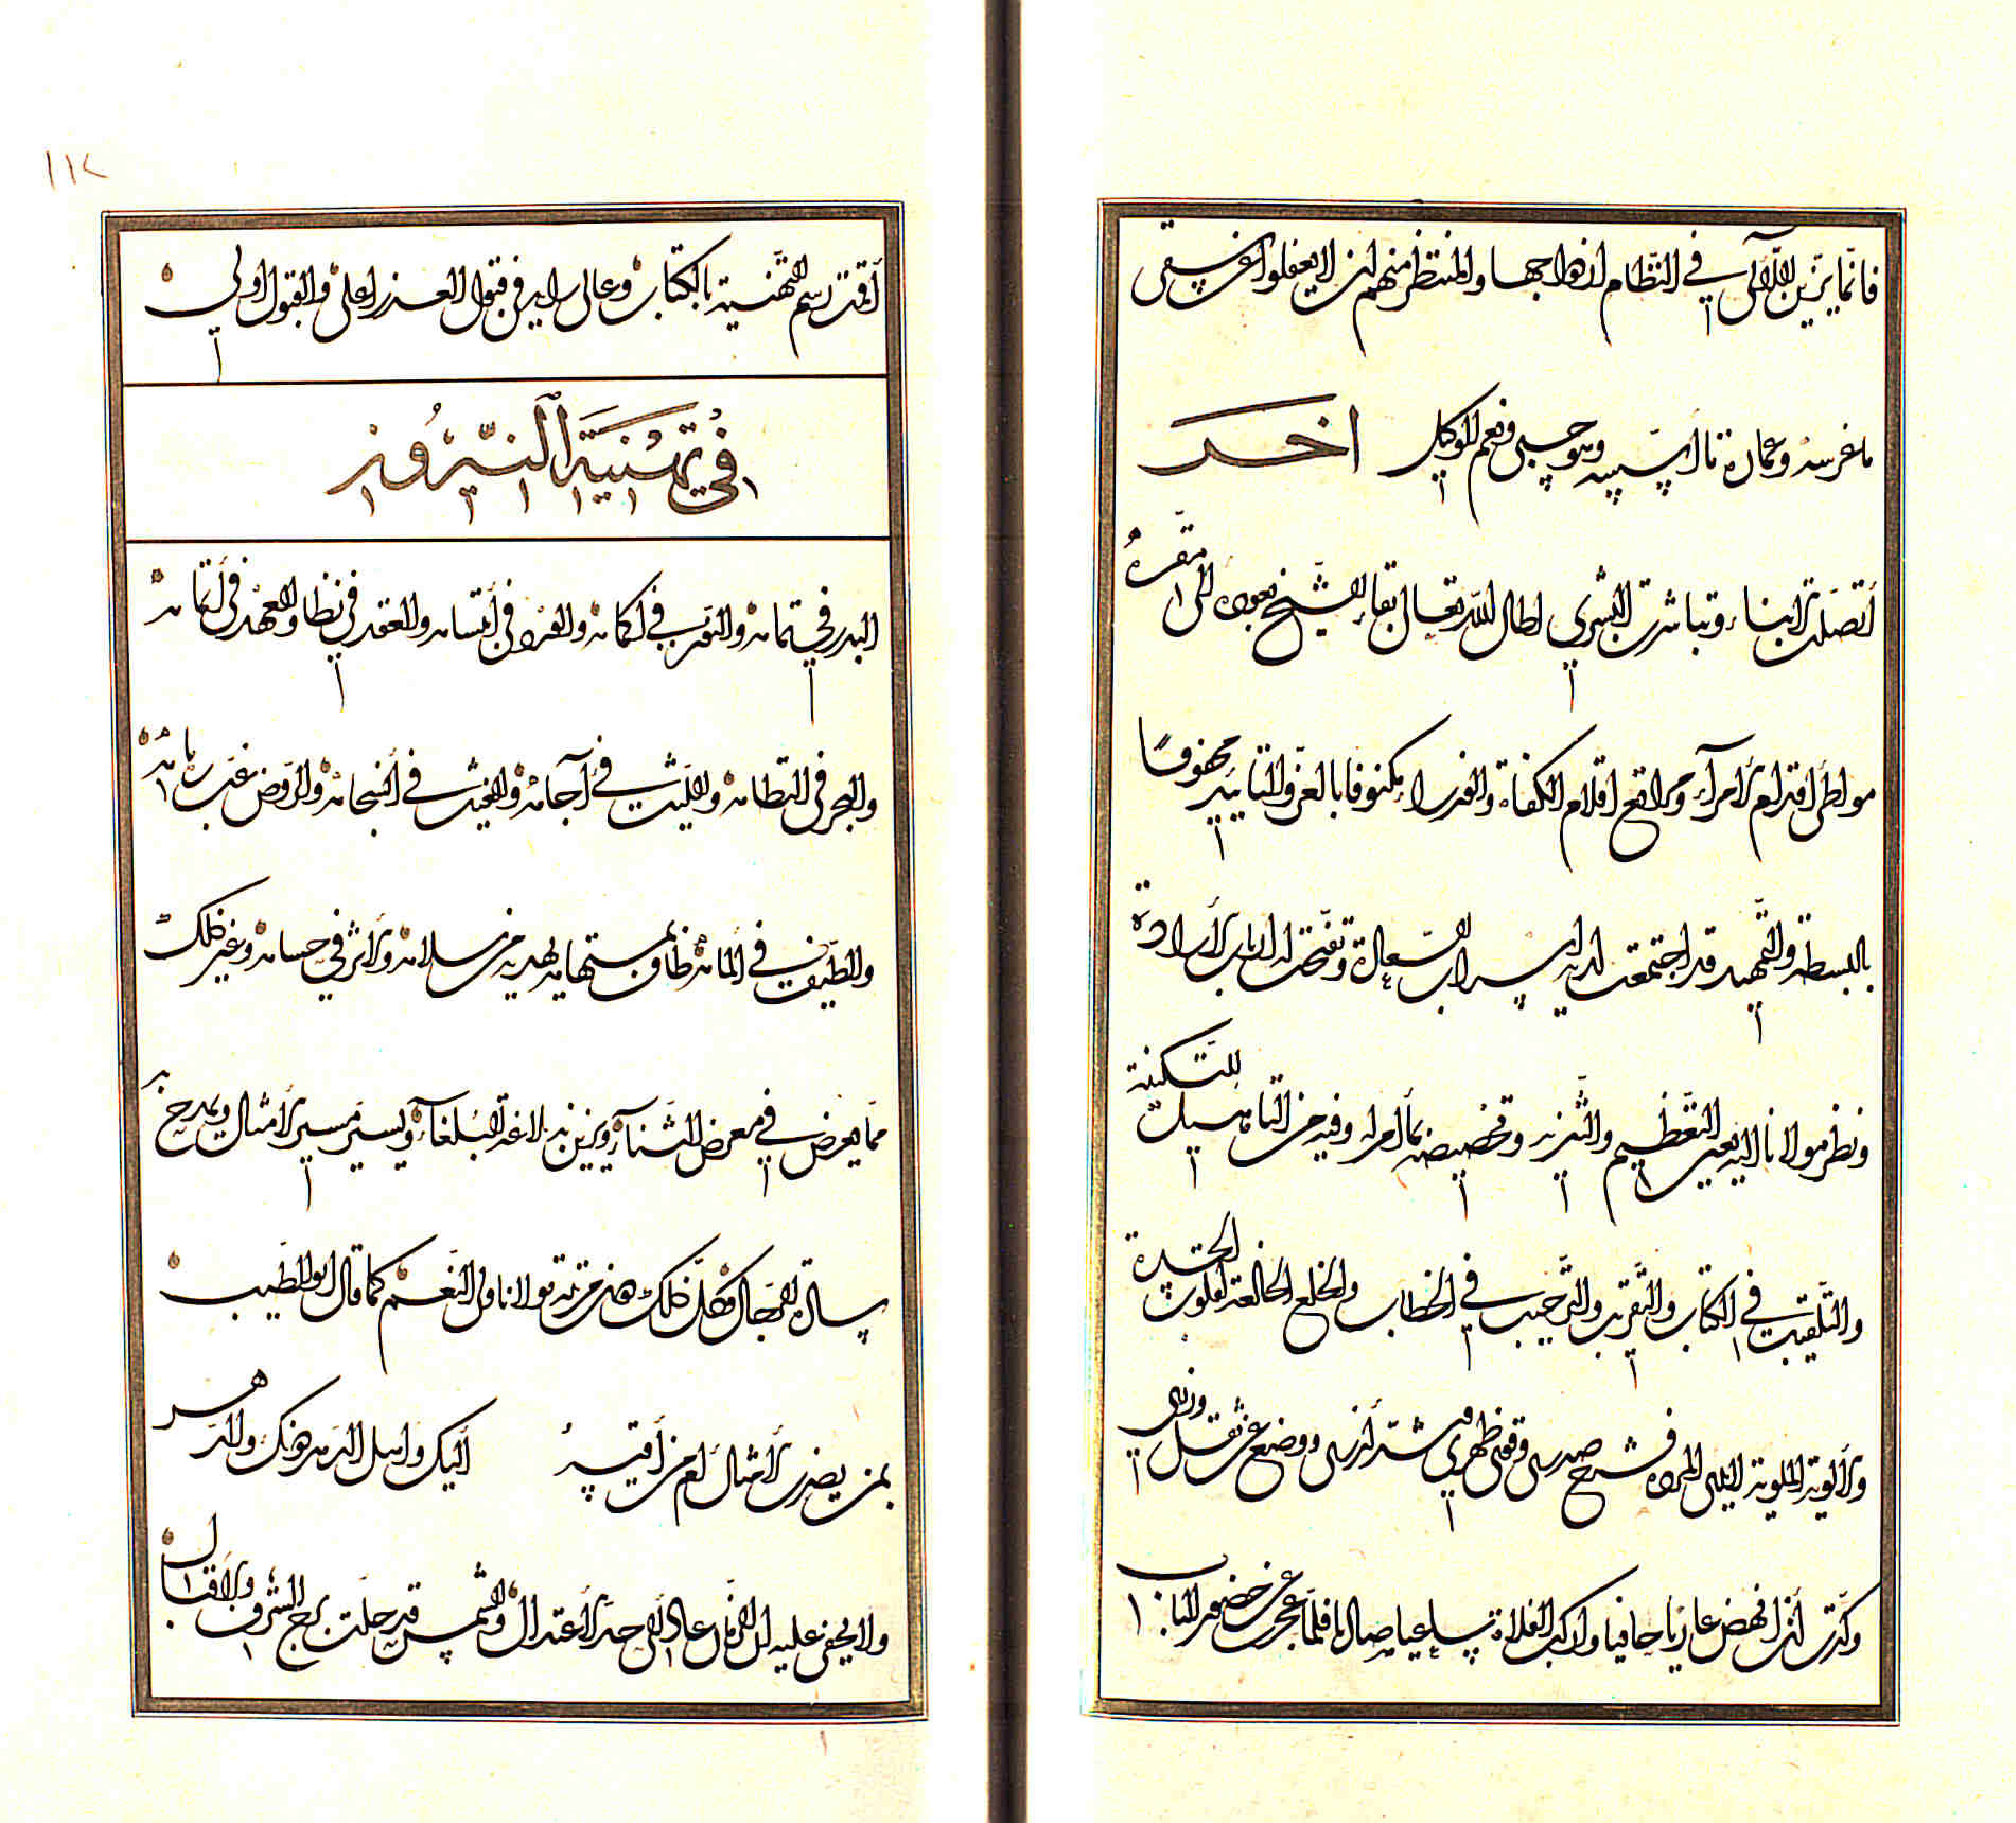 فانّما يزين اللآلي في النّظام ازدواجها والمنتظر منهم ان لا يغفلوا عن سقي
ما غرسه وعمارة ما اسسه وهو حسبي ونعم الوكيل اخر
أتصلت الابناء وتباشرت البشرى اطال الله تعالى بقاء الشيخ بعوده الى مقره
مواطئ اقدام الأمرآء ومواقع اقلام الكفاة والوزراء مكنوفا بالعز والتأييد محفوفًا
بالبسطة والتمهيد قد اجتمعت لديه اسباب السعادة وتفتحت له ابواب الأرادة
ونظر مولانا اليه بعين التعظيم والتنزيه وتخصيصه بما امر له وفيه من التأهيل للتكنية
والتلقيب في الكتاب والتقريب والترحيب في الخطاب والخلع الخالعة لقلوب الحسدة
والألوية الملوية المردة فشرح صدري وقوى ظهري وشد أزري ووضع عن ثقل وزري
وكدت أن انهض عاريا حافيا واركب الفلاة فلما عجزت عن حضور الباب
١١٢
أقمت رسم التهنية بالكتاب وعالي رايه في قبول العذر اعلى والقبول اولى
في تهنية النيروز
البدر في تمامه والنور في اكمامه والفره في أبتسامه والعقد في نظامه والعهد في
والبحر في التطامه والليث في آجامه والغيث في أنسجامه والروض غب رهامه
والطيف في المامه طاف بمستهامه يهديه من سلامه والأثر في حسامه وغير ذلك
مما يعرض في معرض الثناء ويزين به بلاغة البلغاء ويسير مسير الأمثال ويمدح به
سادة الرجال فكل ذلك دون مرتبة مولانا ولي النعم كما قال ابو الطيب
بمن يضرب الأمثال أم من أقيسه اليك واهل الدهر دونك والدهر
ولا يخفى عليه ان الزمان عاد الى حد الأعتدال والشمس قد حلت برج الشرف والأقبال